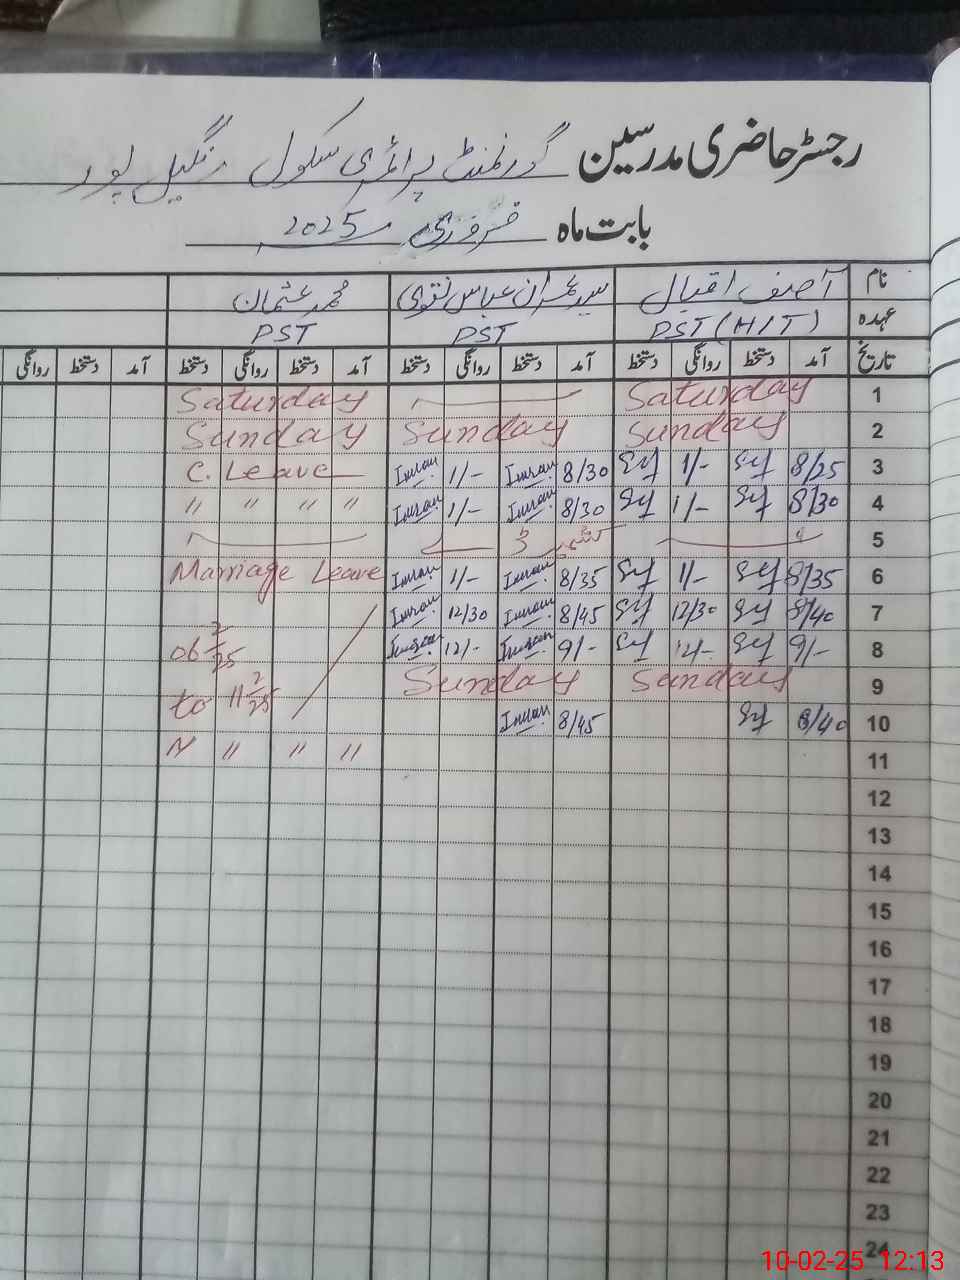 رجسٹر حاضری مدرسین گورنمنٹ پرائمری سکول رنگیل پور
بابت ماہ فروری 2025
نام آصف اقبال سید عمران عباس نقوی محمد عثمان
عہدہ PST (H/T) PST PST
تاریخ آمد دستخط روانگی دستخط آمد دستخط روانگی دستخط آمد دستخط روانگی دستخط آمد دستخط روانگی
1 Saturday Saturday
2 Sunday Sunday Sunday
3 8/25 1/- 8/30 Imran 1/- Imran C. Leave
4 8/30 1/- 8/30 Imran 1/- Imran " " " "
5 کشمیر ڈے
6 8/35 1/- 8/35 Imran 1/- Imran Marriage Leave
7 8/40 12/30 8/45 Imran 12/30 Imran
8 9/- 12/- 9/- Imran 12/- Imran 06 2/25
9 Sunday Sunday to 11 2/25
10 8/40 8/45 Imran
11 " " " "
12
13
14
15
16
17
18
19
20
21
22
23
24
10-02-25 12:13